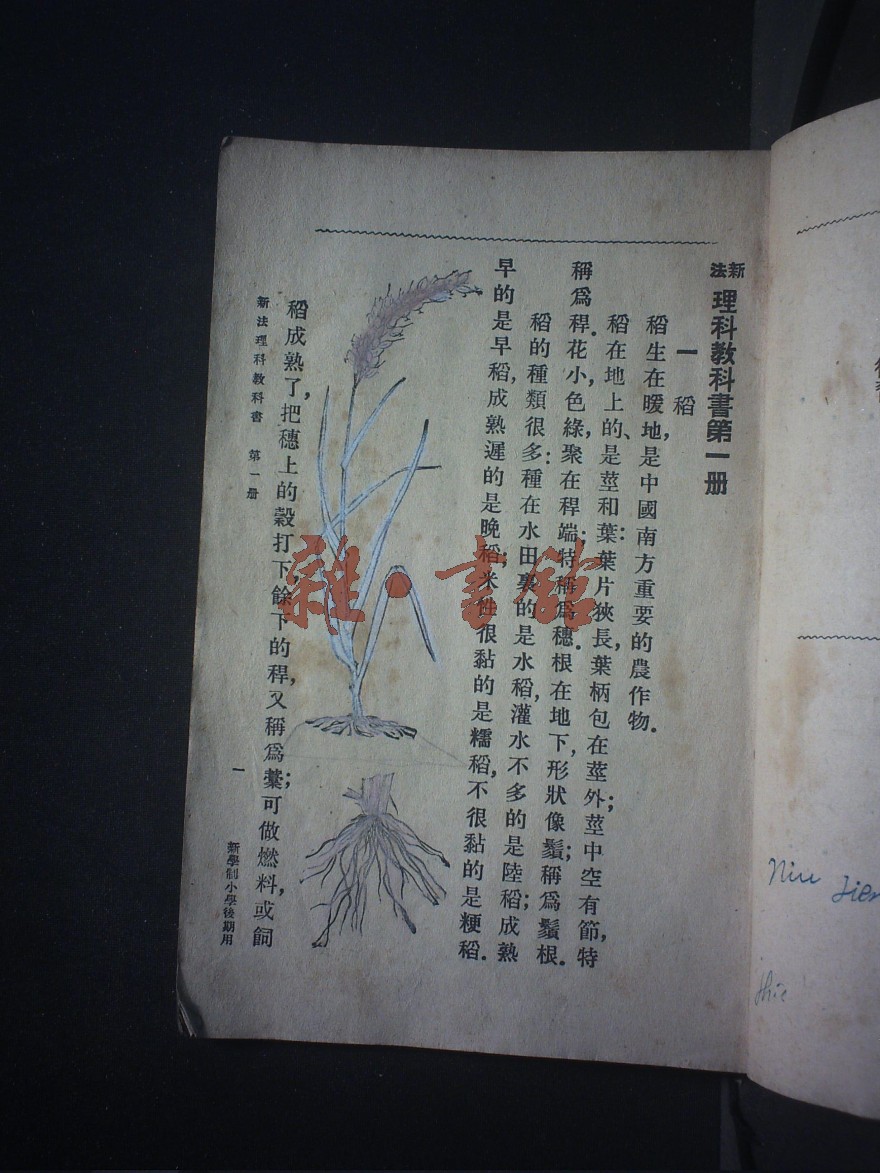 新法理科教科書第一册
一 稻
稻生在暖地,是中國南方重要的農作物.
稻在地上的、是莖和葉:葉片狹長,葉柄包在莖外;莖中空有節,特
稱爲稈.花小,色綠,聚在稈端;特稱爲穗.根在地下,形狀像鬚;稱爲鬚根.
稻的種類很多:種在水田裏的是水稻,灌水不多的是陸稻;成熟
早的是早稻,成熟遲的是晚稻;米性很黏的是糯稻,不很黏的是粳稻.
稻成熟了,把穗上的穀打下,餘下的稈,又稱爲藁;可做燃料,或飼
新法理科教科書 第一册
一
新學制小學後期用
雜·書館
Niu
thie